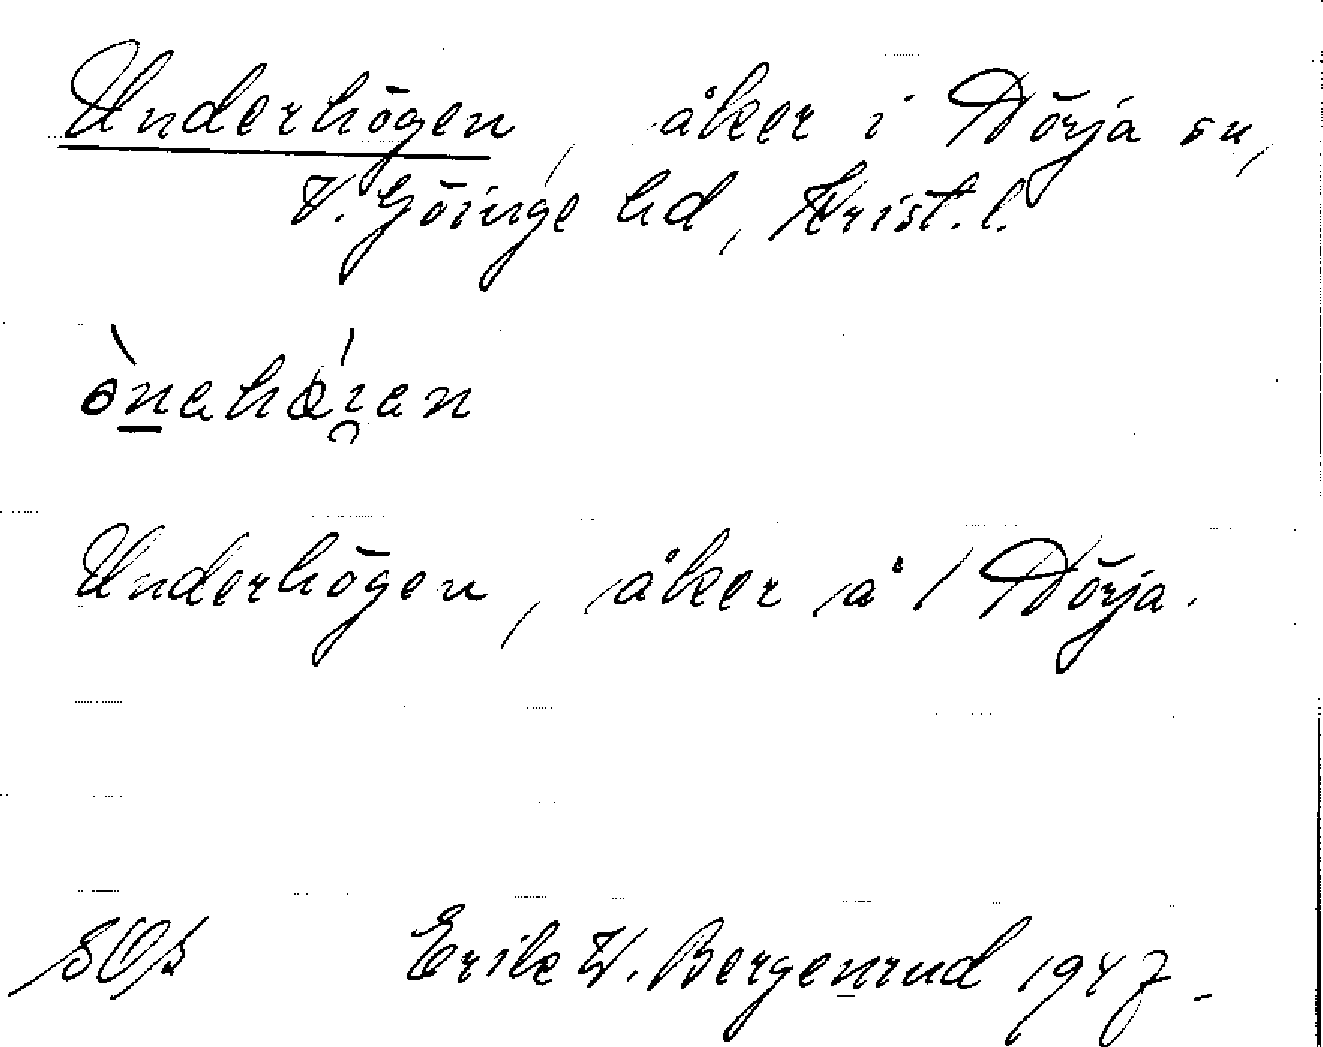 Underhögen, åker i Dörja sn,
V. Göinge hd, Krist. l.
Underhögen, åker å 1 Dörja.
Erik W. Bergenrud 1947.